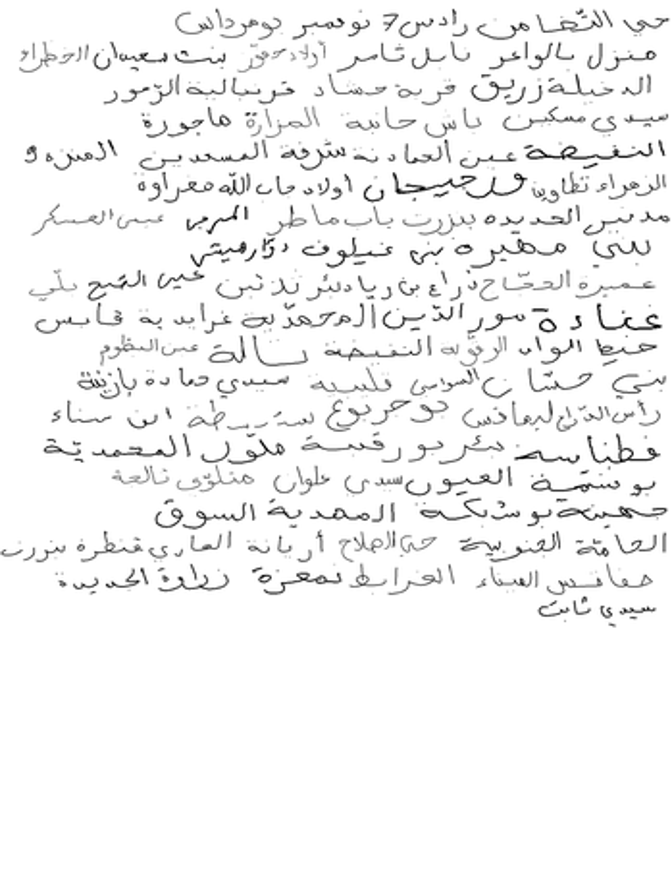 حي التضامن رادس 7 نوفمبر بومرداس
منزل بالواعر نابل ثامر أولاد حفوز بنت سعيدان الخطراء
الدخيلة زريق قرية حشاد قرنبالية الزهور
سيدي مسكين باش حانبة المزارة ماجورة
النفيضة عين الحمادنة شرفة المسعدين المنزه 9
الزهراء تطاوين ورجيجان أولاد جاب الله مغراوة
مدنين الجديدة بنزرت باب ماطر المرجى عين العسكر
بني مهيرة بني غيلوف دوار هيشر
عميرة الحجاج ذراع بن زياد بئر عين الشيخ
غنادة نور الدين المحمدية غرايدية قابس
حنبط الواد النفيضة تالة عين البظوم
بني حسان السواسي قليبية سيدي حمادة بازينة
رأس الذراع ليماقس بوجربوع سبيطلة ابن سيناء
فطناسة بئر بورقبة ملول المعمدية
بوشمة العيون سيدي علوان منلوى تالعة
جهينة بوشبكة المهدية السوق
الحامة الجنوبية حي الصلاح أريانة الهاري قنطرة بنزرت
صفاقس الميناء الخرايط نمغزة زوارة الجديدة
سيدي ثابت